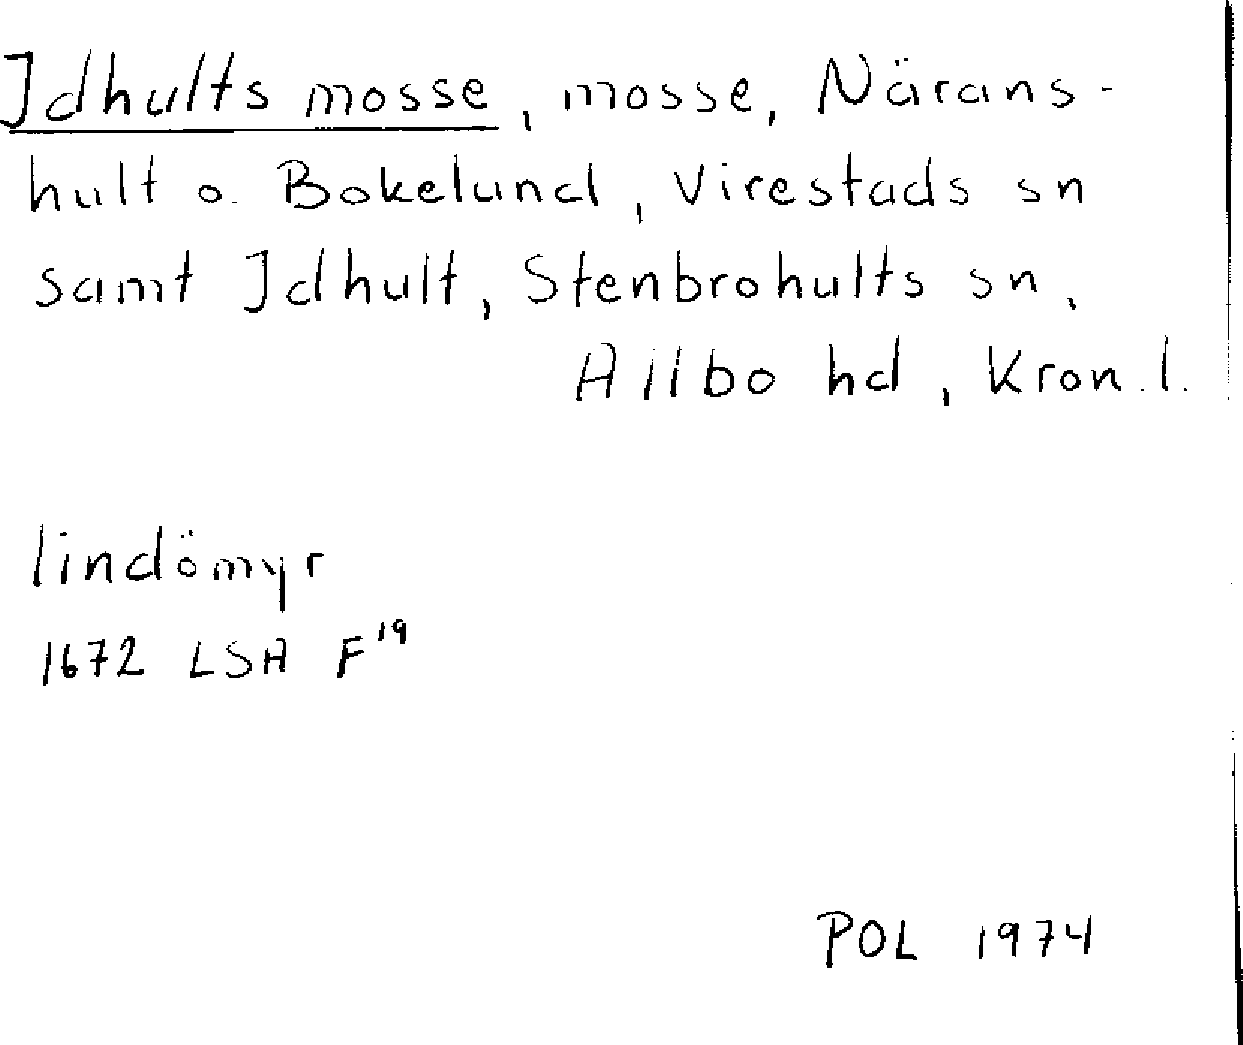 Idhults mosse, mosse, Närans-
hult o. Bokelund, Virestads sn
samt Idhult, Stenbrohults sn,
Allbo hd, Kron. l.
lindömyr
1672 LSA F¹⁹
POL 1974